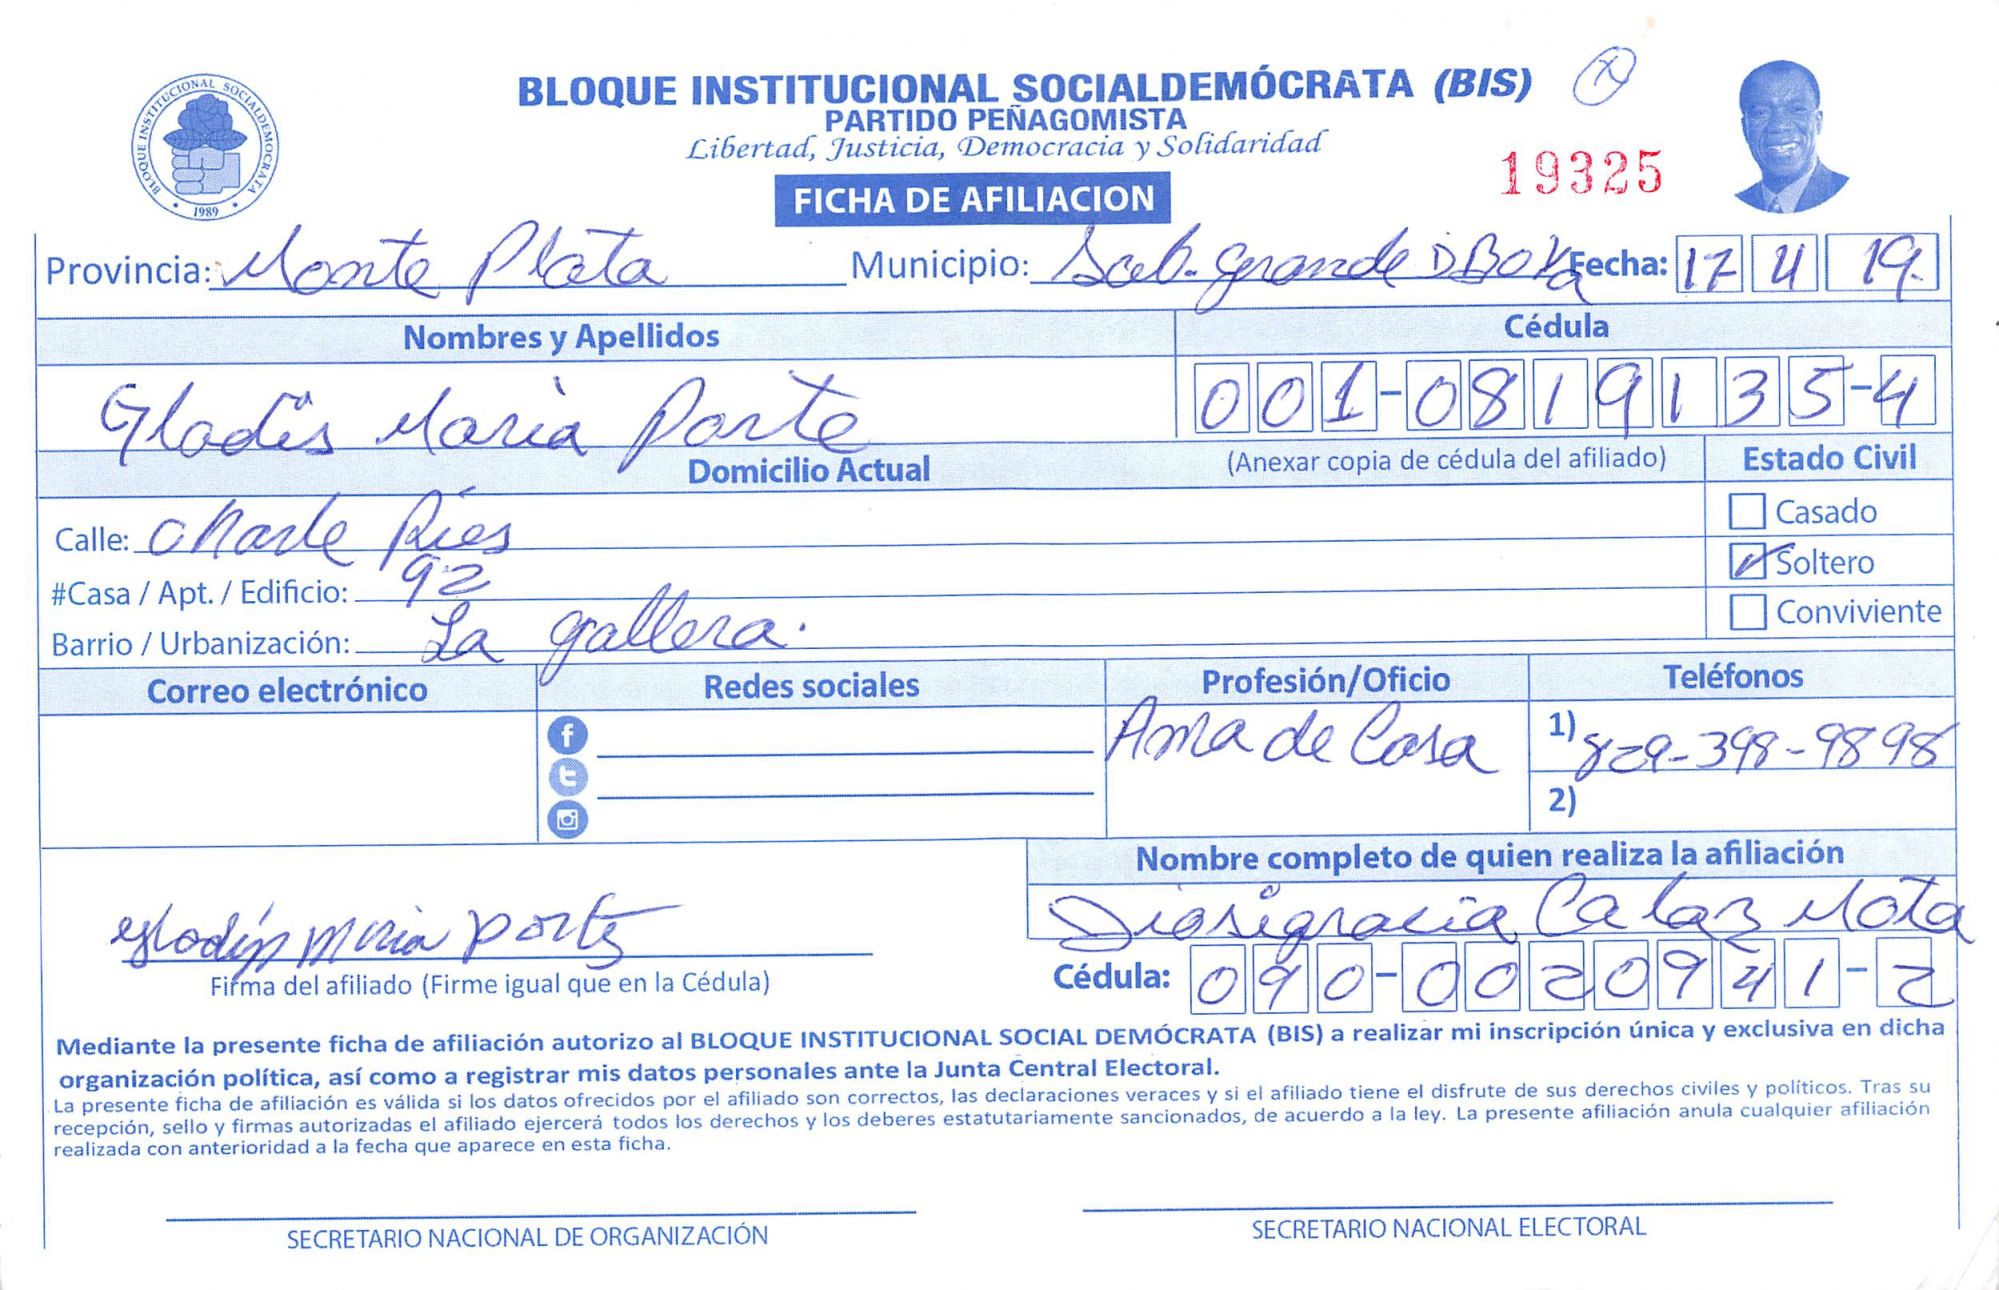 BLOQUE INSTITUCIONAL SOCIALDEMÓCRATA (BIS)
PARTIDO PEÑAGOMISTA
Libertad, Justicia, Democracia y Solidaridad
BLOQUE INSTITUCIONAL SOCIALDEMOCRATA
1989
19325
FICHA DE AFILIACION
Provincia: Monte Plata Municipio: Sab. grande D Boya Fecha: 17 4 19
Nombres y Apellidos Cédula
Gladis Maria Porte 001-0819135-4
Domicilio Actual (Anexar copia de cédula del afiliado) Estado Civil
Calle: Charle Ries Casado
#Casa / Apt. / Edificio: 92 Soltero
Barrio / Urbanización: La gallera. Conviviente
Correo electrónico Redes sociales Profesión/Oficio Teléfonos
Ama de Casa 1) 829-398-9898
2)
Nombre completo de quien realiza la afiliación
Diosigracia Calaz Mota
Gladis Maria Porte
Firma del afiliado (Firme igual que en la Cédula) Cédula: 090-0020941-2
Mediante la presente ficha de afiliación autorizo al BLOQUE INSTITUCIONAL SOCIAL DEMÓCRATA (BIS) a realizar mi inscripción única y exclusiva en dicha
organización política, así como a registrar mis datos personales ante la Junta Central Electoral.
La presente ficha de afiliación es válida si los datos ofrecidos por el afiliado son correctos, las declaraciones veraces y si el afiliado tiene el disfrute de sus derechos civiles y políticos. Tras su
recepción, sello y firmas autorizadas el afiliado ejercerá todos los derechos y los deberes estatutariamente sancionados, de acuerdo a la ley. La presente afiliación anula cualquier afiliación
realizada con anterioridad a la fecha que aparece en esta ficha.
SECRETARIO NACIONAL DE ORGANIZACIÓN SECRETARIO NACIONAL ELECTORAL